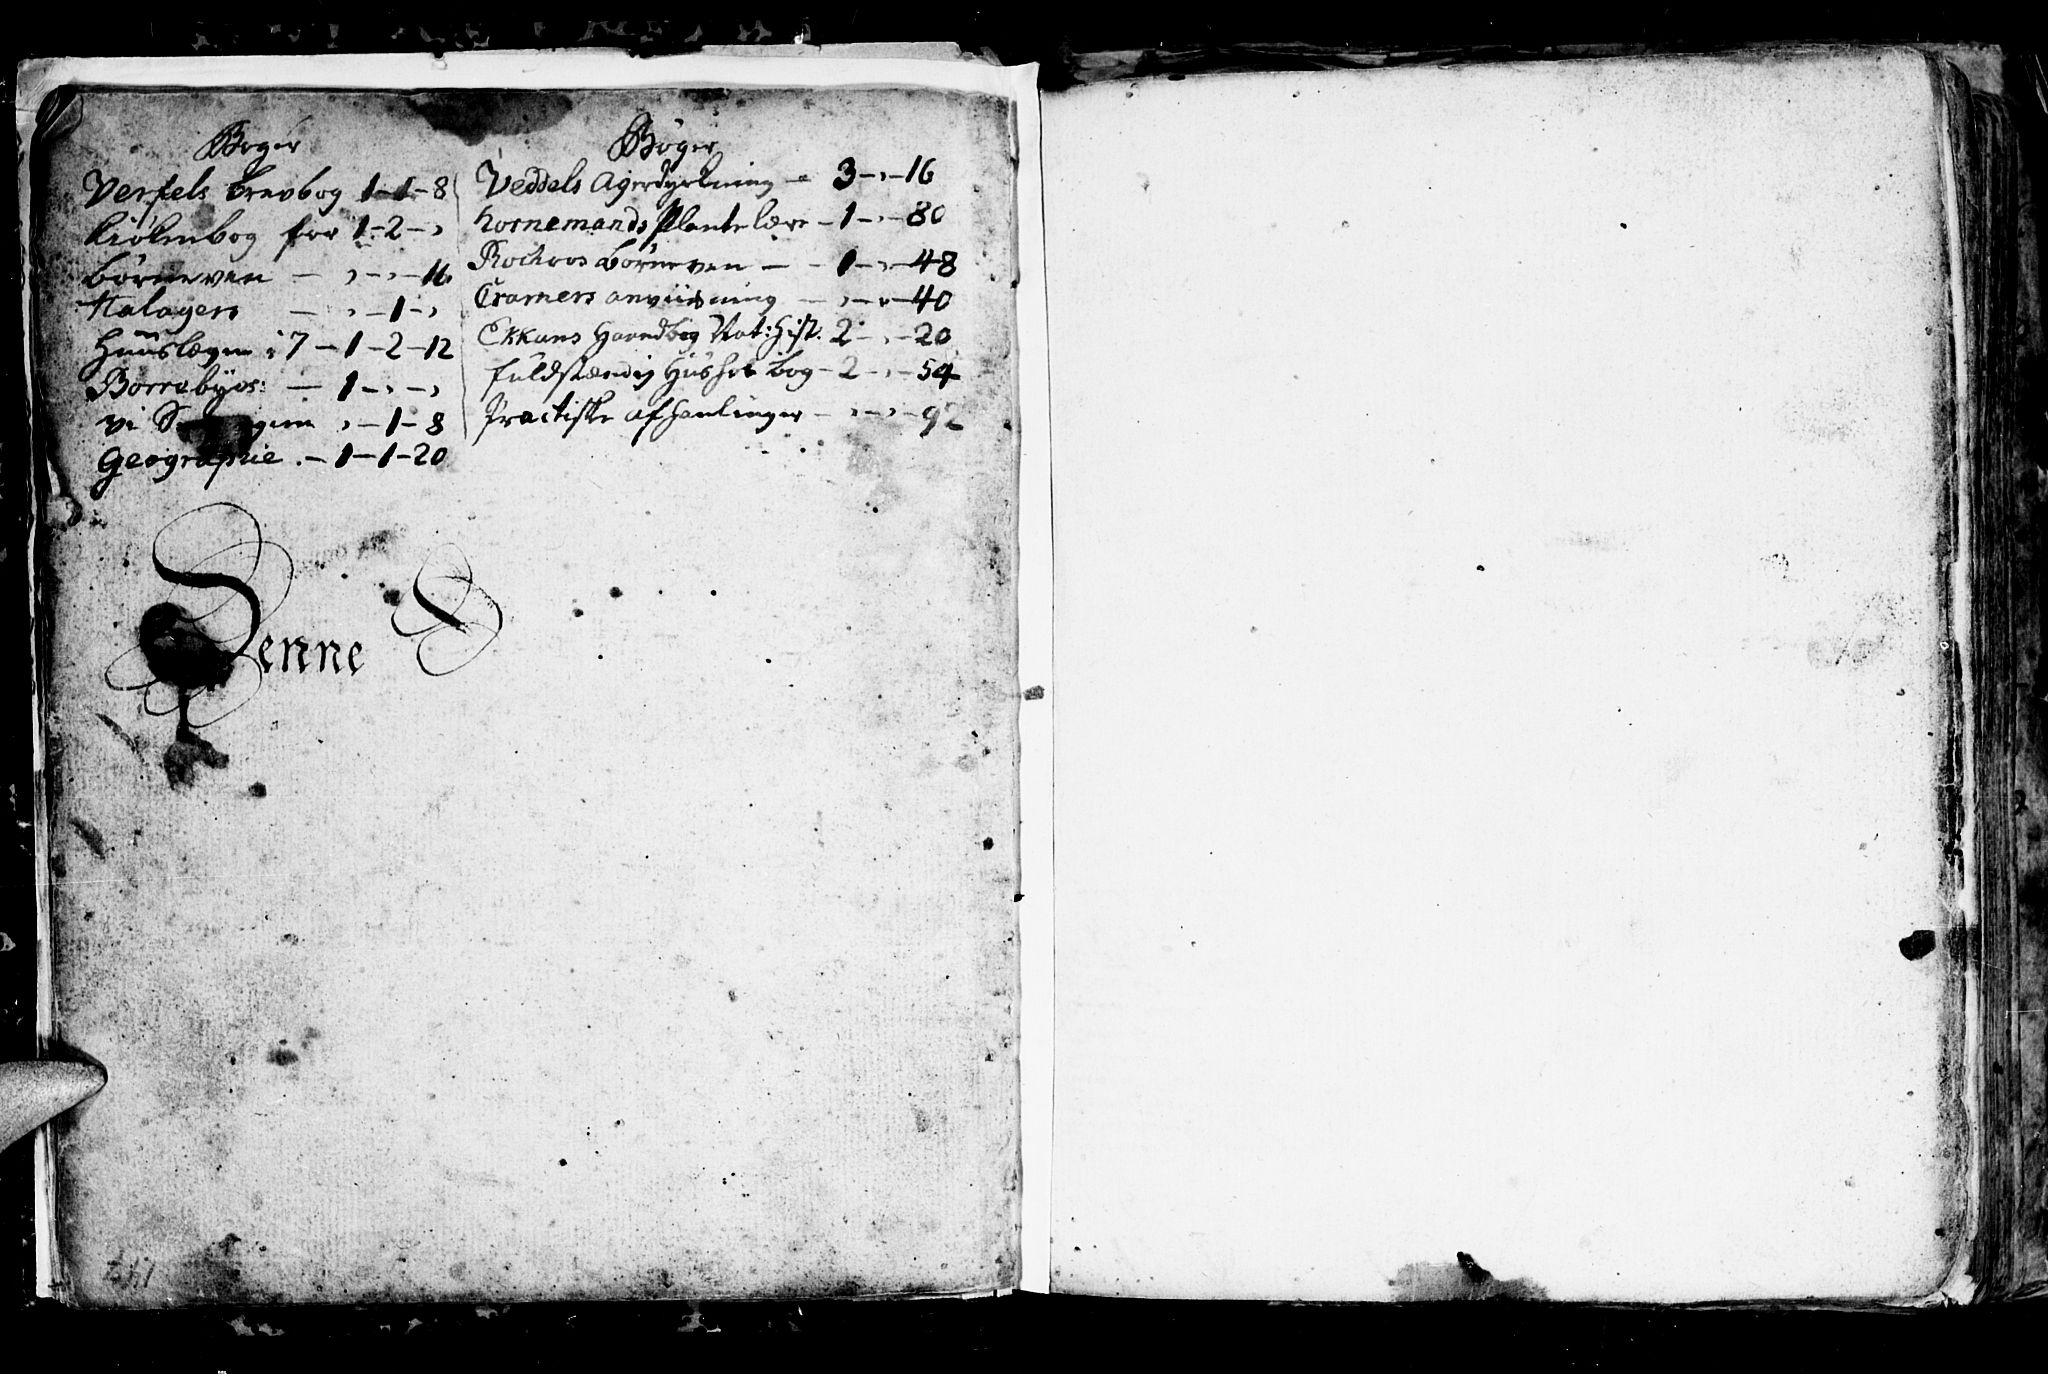 Bøger
Versels brevbog 1-1-8
kiökenbog for 1-2-,
börneven - , - , - 16
Halagers - , - 1 - ,
Huuslægen i 7 - 1 - 2 - 12
Borrebyes: - 1 - , - ,
vi , - 1 - 8
Geographie . - 1 - 1 - 20
Bøger
Veddels Agerdyrkning - 3 - , - 16
hornemands Plantelære - 1 - , - 80
Rochows börneven - - 1 - , - 48
Cramers anviisning - , - , - 40
Ekkans Haandbog Nat: hist. 2 - , - 20
fuldstændig Hushol bog - 2 - , - 54
Practiske afhanlinger - , - , - 92
Denne